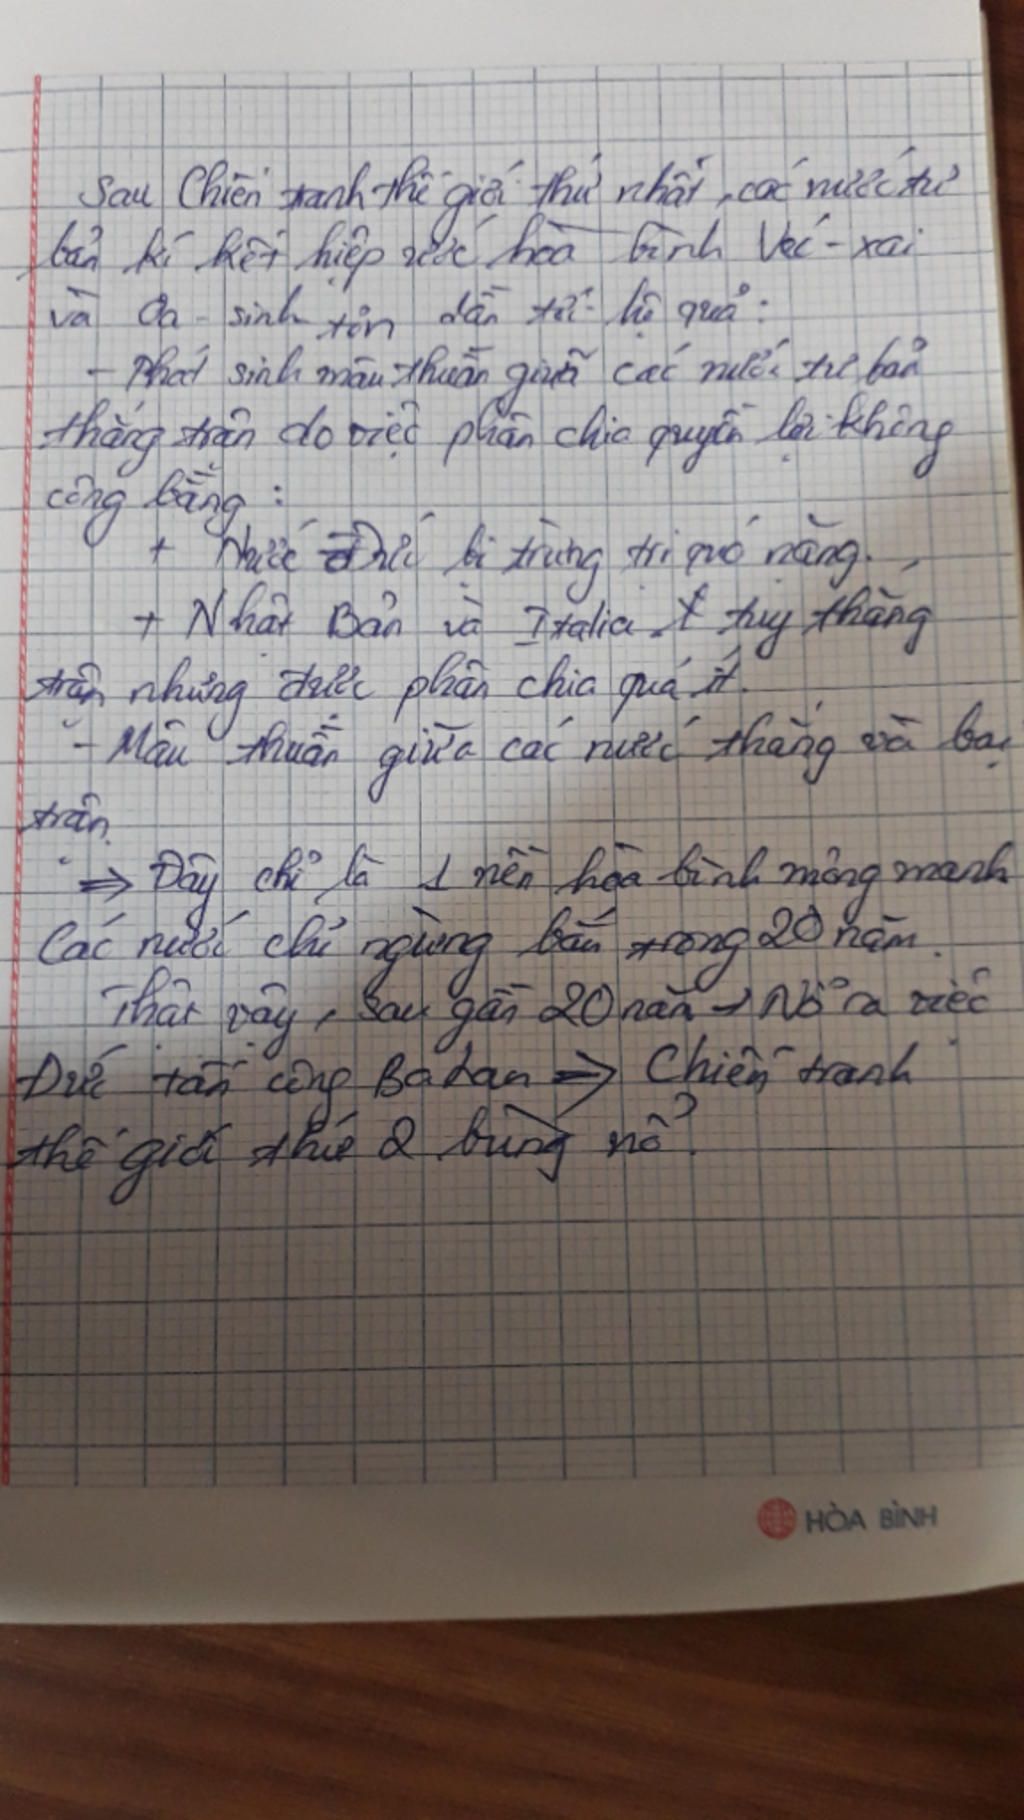 Sau Chiến tranh thế giới thứ nhất, các nước tư
bản kí kết hiệp ước hòa bình Véc-xai
và Oa-sinh tơn dẫn tới hệ quả:
- Phát sinh mâu thuẫn giữa các nước tư bản
thắng trận do việc phân chia quyền lợi không
công bằng:
+ Nước Đức bị trừng trị quá nặng.
+ Nhật Bản và Italia tuy thắng
trận nhưng được phân chia quá ít.
- Mâu thuẫn giữa các nước thắng và bại
trận.
=> Đây chỉ là 1 nền hòa bình mỏng manh
Các nước chỉ ngừng bắn trong 20 năm.
Thật vậy, sau gần 20 năm → Nổ ra việc
Đức tấn công Ba Lan => Chiến tranh
thế giới thứ 2 bùng nổ.
HÒA BÌNH